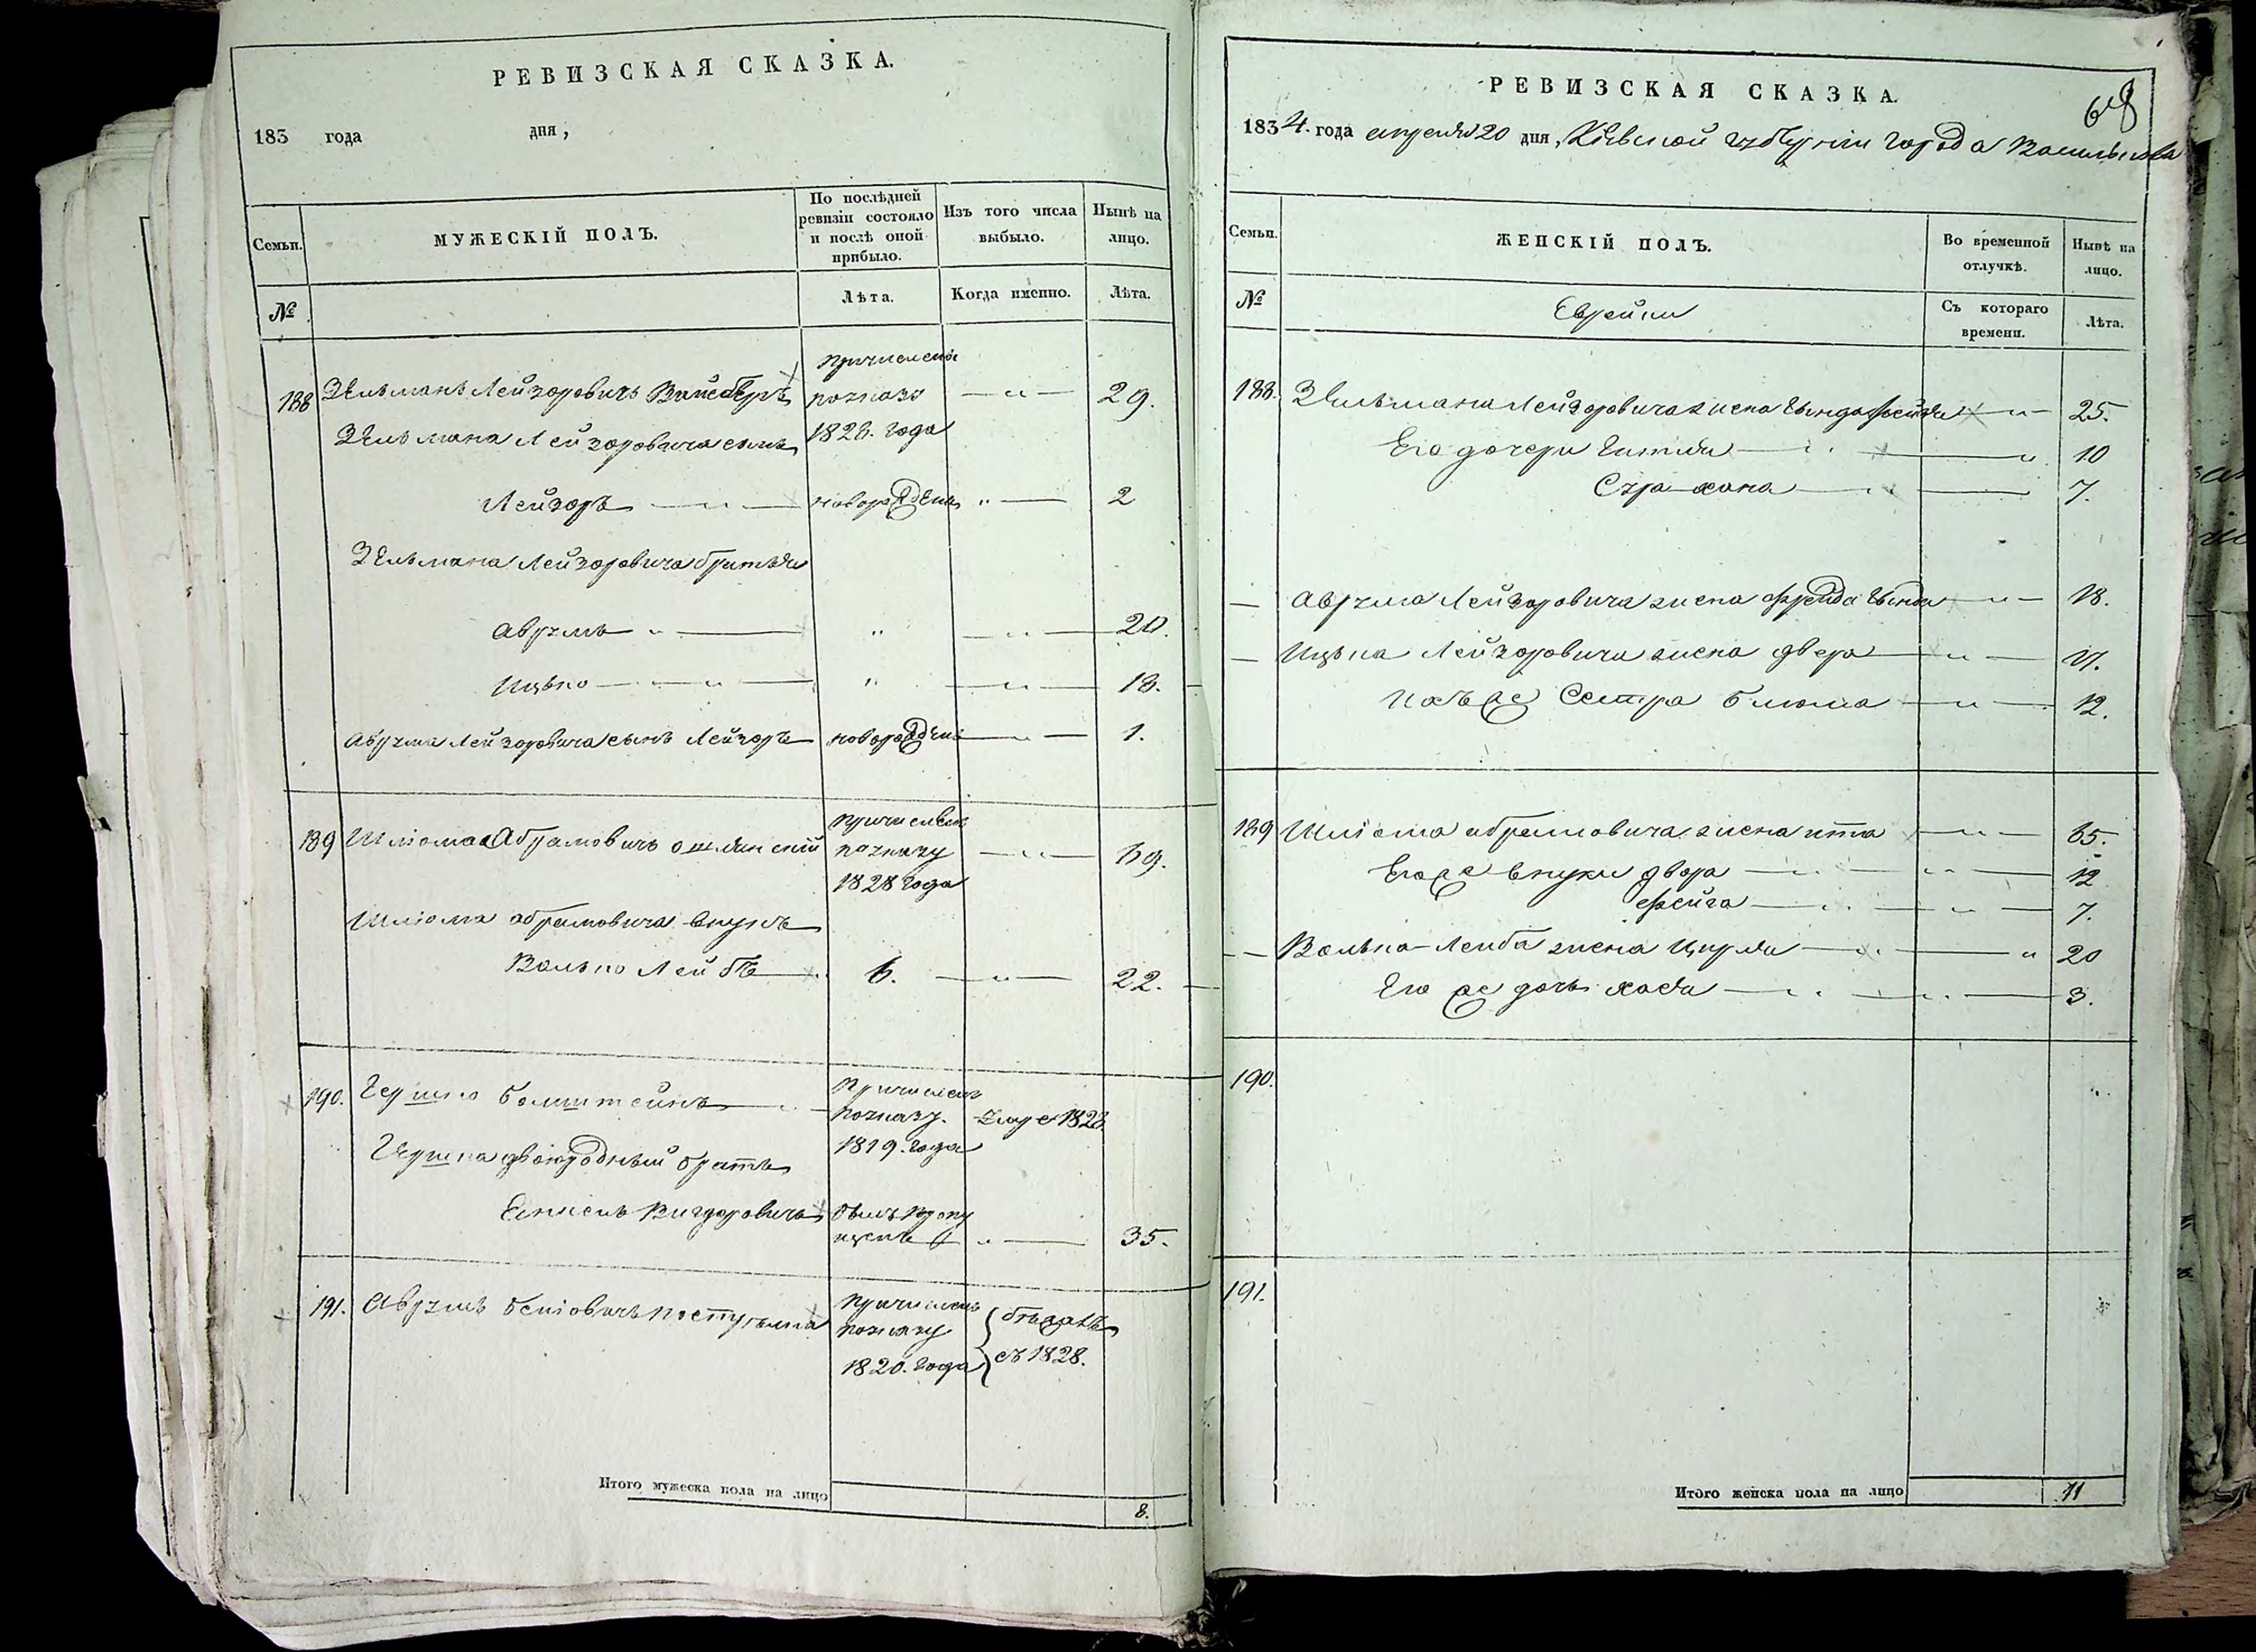 РЕВИЗСКАЯ СКАЗКА.
183 года дня,
Семьи.
МУЖЕСКІЙ ПОЛЪ.
По послѣдней ревизіи состояло и послѣ оной прибыло.
Изъ того числа выбыло.
Нынѣ на лицо.
№
Лѣта.
Когда именно.
Лѣта.
188 Зельманъ Лейзоровичъ Вайсберъ причисленъ по указу 1828. года — " — 29.
Зельмана Лейзоровича сынъ
Лейзоръ — " — новорожденъ " — 2
Зельмана Лейзоровича братья
Аврумъ " — " — " — 20.
Ицько — " — " — " — 18.
Аврума Лейзоровича сынъ Лейзоръ новорожденъ — " — 1.
189 Шліома Абрамовичъ ошлянскій причисленъ по указу 1828 года — " — 69.
Шліома абрамовича внукъ
Волько Лейбъ — 6. — " — 22.
190. Гершко Болштейнъ — " — Причисленъ по указу. 1819. года умре 1828
Гершка двоюродный братъ
Вигдоровичъ былъ пропущенъ " — 35.
191. Аврумъ Беніовичъ Причисленъ по указу 1820. года бежалъ съ 1828.
Итого мужеска пола на лицо 8.
РЕВИЗСКАЯ СКАЗКА.
68
1834. года апреля 20 дня, Кіевской губерніи города Василькова
Семьи.
ЖЕНСКІЙ ПОЛЪ.
Во временной отлучкѣ.
Нынѣ на лицо.
№
Еврейки
Съ котораго времени.
Лѣта.
188. Зельмана Лейзоровича жена Гинда фейга — " — 25.
Его дочери Гитля — " — " 10
Сура хана — " — 7.
— Аврума Лейзоровича жена фрейда Гинда — " — 18.
— Ицька Лейзоровича жена двера — " — 17.
Ихъ же Сестра блюма — " — 12.
189 Шліома абрамовича жена ита — " — 65.
Его же внуки двора — " — " — 12
фейга — " — " — 7.
— Волька Лейба жена Цирля — " — " 20
Его же дочь хася — " — " — 3.
190.
191.
Итого женска пола на лицо 11